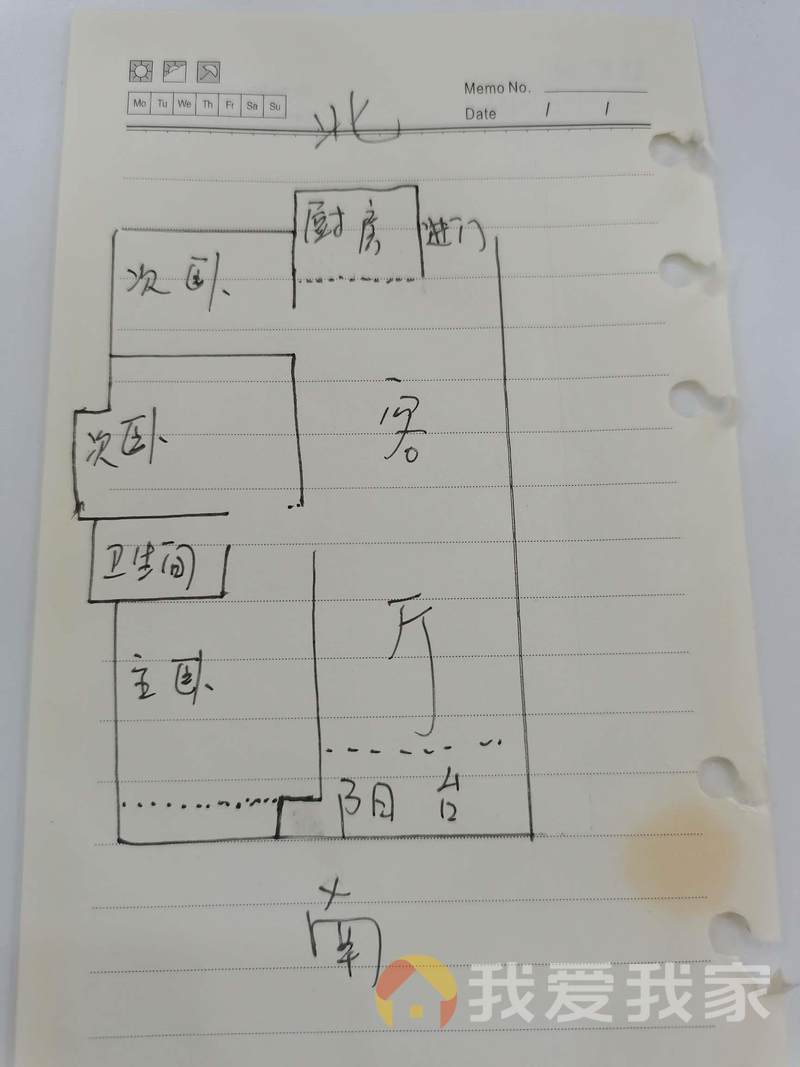 Memo No.
Mo Tu We Th Fr Sa Su
Date / /
北
厨房 进门
次卧
客
次卧
卫生间
厅
主卧
阳台
南
我爱我家